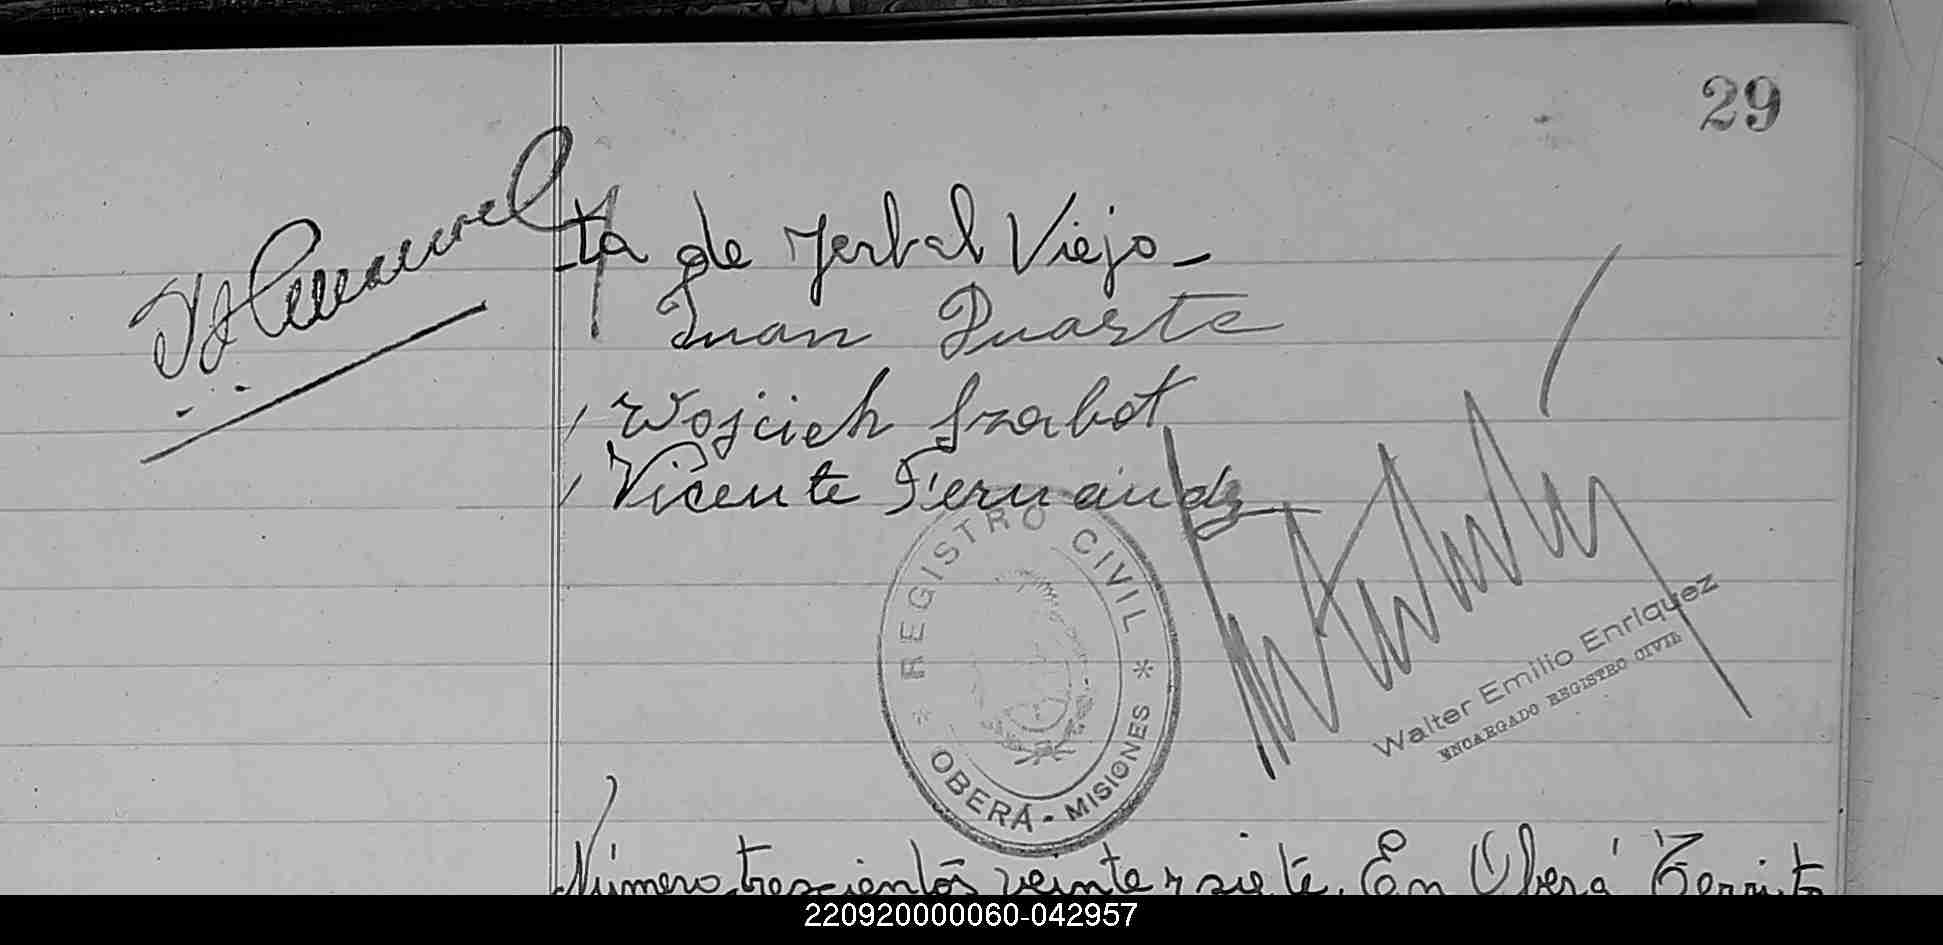 29
ta de Yerbal Viejo_
Juan Duarte
Wojciech Szabot
Vicente Fernández
REGISTRO CIVIL
OBERÁ - MISIONES
Walter Emilio Enriquez
ENCARGADO REGISTRO CIVIL
Número trescientos veinte y siete. En Oberá Territo
220920000060-042957